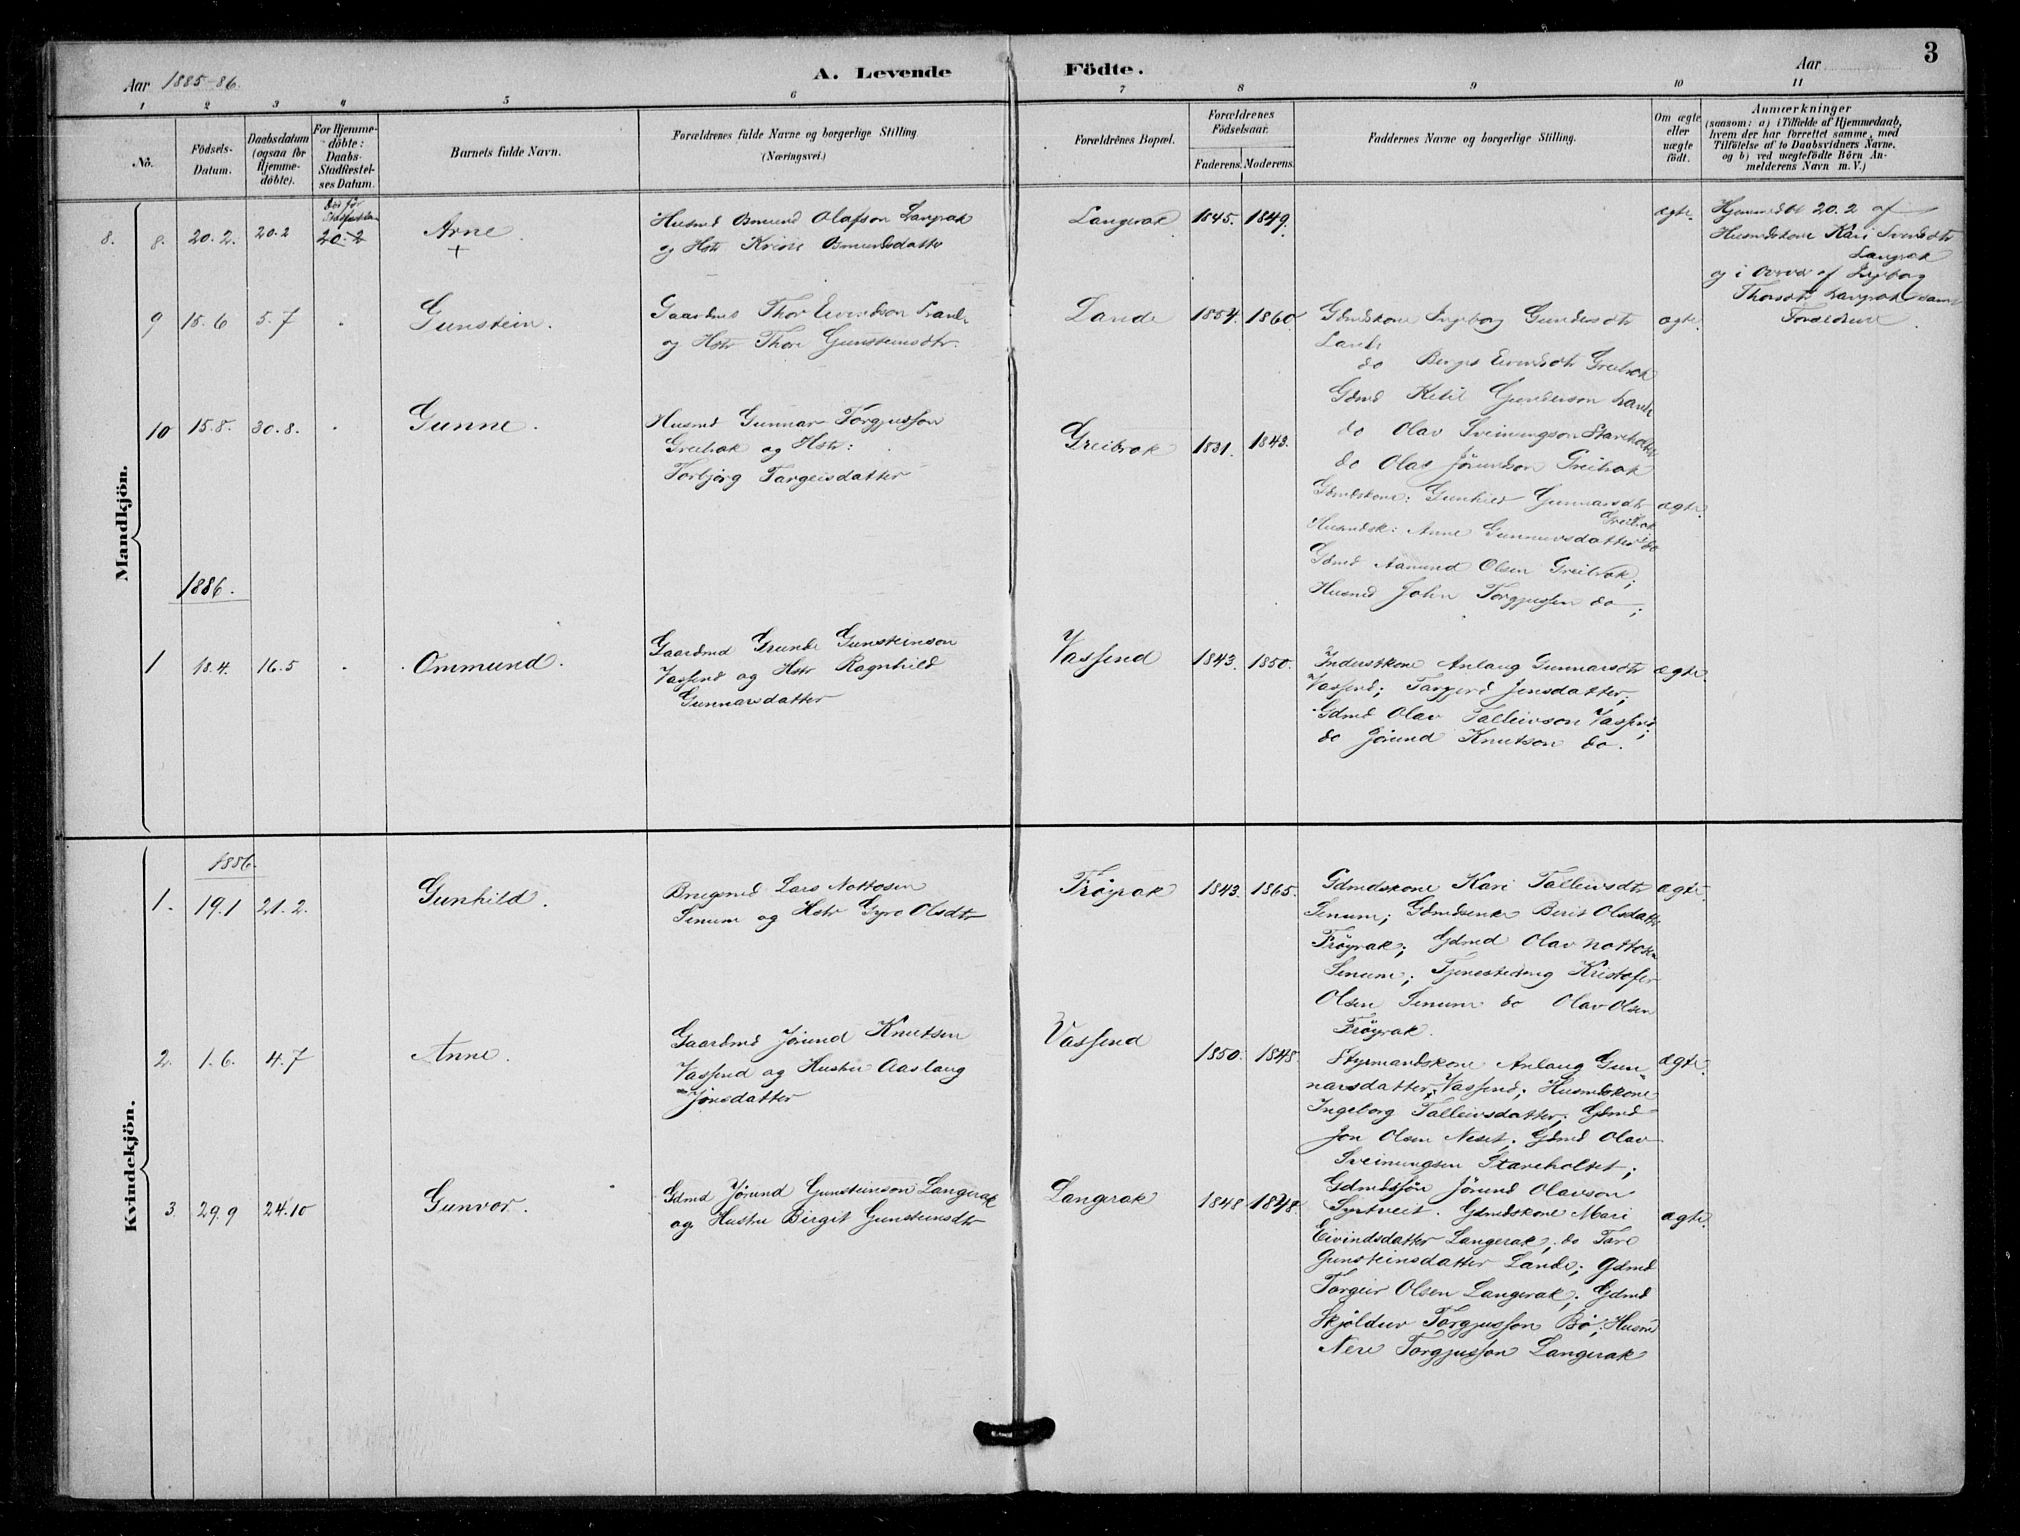 Aar 1885-86.
A. Levende Födte.
Aar
3
1 2 3 4 5 6 7 8 9 10 11
No.
Födsels-Datum.
Daabsdatum (ogsaa for Hjemme-döbte).
For Hjemme-döbte: Daabs-Stadfæstel-ses Datum.
Barnets fulde Navn.
Forældrenes fulde Navne og borgerlige Stilling.
(Næringsvei.)
Forældrenes Bopæl.
Forældrenes Födselsaar.
Faderens. Moderens.
Faddernes Navne og borgerlige Stilling.
Om ægte eller uægte födt.
Anmærkninger
(saasom: a) i Tilfælde af Hjemmedaab, hvem der har forrettet samme, med Tilföielse af to Daabsvidners Navne, og b) ved uægtefödte Börn Anmelderens Navn m.V.)
Mandkjön.
8. 8. 20.2. 20.2 död før 20.2
Arne
+
Husmd Osmund Olafson Langrak
og Hstr Kristi Osmundsdattr
Langerak 1845. 1849. ægte.
Hjemmedbt 20.2 af
Husmdskone Kari Svensdtr
Langrak
og i Overvær af Ingeborg
Thorsdtr Langrak samt
Forældrene
9 15.6 5.7 .
Gunstein.
Gaardmd Thor Eivindson Lande
og Hstr Thore Gunsteinsdtr.
Lande 1854. 1860
Gdmdskone Ingeborg Gundersdtr
Lande
do Berget Eivindsdtr Greibrok
Gdmd Ketil Gunderson Lande
do Olav Sveinungson Stareholtet
do Olav Jörundson Greibrok
ægte.
10 15.8. 30.8. .
Gunne.
Husmd Gunnar Torgjusson
Greibrok og Hstr:
Torbjörg Targeisdatter
Greibrok 1831. 1843.
Gdmdskone: Gunhild Gunnarsdtr
Greibrok
Husmdsk: Anne Gunnarsdatter do
Gdmd Aamund Olsen Greibrok;
Husmd John Torgjussen do;
ægte.
1886.
1 18.4. 16.5 .
Ommund.
Gaardmd Grunde Gunsteinson
Vassend og Hstr Ragnhild
Gunnarsdatter
Vassend 1843. 1850.
Inderstkone Anlaug Gunnarsdtr
Vassend; Targjerd Jensdatter;
Gdmd Olav Talleivson Vassend;
do Jörund Knutson do.
ægte.
Kvindekjön.
1886.
1. 19.1 21.2.
Gunhild.
Brugsmd Lars Nottosen
Senum og Hstr Gyro Olsdtr
Fröyrak 1843. 1865.
Gdmdskone Kari Talleivsdtr
Senum; Gdmdsenke Berit Olsdattr
Fröyrak; Gdmd Olav Nottosen
Senum; Tjenestedrng Kristofer
Olsen Senum do Olav Olsen
Fröyrak.
ægte.
2. 1.6. 4.7
Anne.
Gaardmd Jörund Knutsen
Vassend og Hustru Aaslaug
Jönsdatter
Vassend 1850. 1848.
Styrmandskone Anlaug Gun-
narsdatter, Vassend; Husmdskone
Ingeborg Talleivsdatter; Gdmd
Jon Olsen Neset; Gdmd Olav
Sveinungsen Stareholtet;
Gdmdssön Jörund Olavson
Syrtveit.
ægte.
3. 29.9 24.10
Gunvor.
Gdmd Jörund Gunsteinson Langerak
og Hustru Birgit Gunsteinsdtr
Langerak 1848 1848.
Gdmdskone Mari
Eivindsdatter Langerak; do Tare
Gunsteinsdatter Lande; Gdmd
Torgeir Olsen Langerak; Gdmd
Skjöldulv Torgjusson Bö; Husmd
Nere Torgjusson Langerak
ægte.